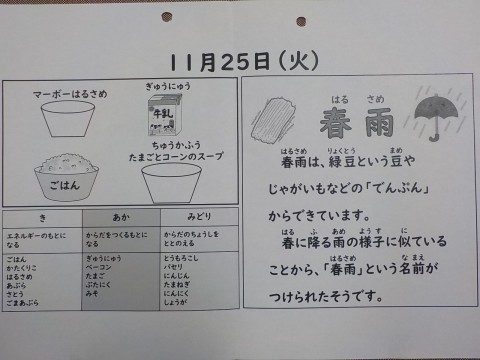 11月25日(火)
マーボーはるさめ
ぎゅうにゅう
牛乳
ごはん
ちゅうかふう
たまごとコーンのスープ
き
あか
みどり
エネルギーのもとに
なる
からだをつくるもとに
なる
からだのちょうしを
ととのえる
ごはん
かたくりこ
はるさめ
あぶら
さとう
ごまあぶら
ぎゅうにゅう
ベーコン
たまご
ぶたにく
みそ
とうもろこし
パセリ
にんじん
たまねぎ
にんにく
しょうが
はる さめ
春雨
はるさめ りょくとう まめ
春雨は、緑豆という豆や
じゃがいもなどの「でんぷん」
からできています。
はる ふ あめ ようす に
春に降る雨の様子に似ている
はるさめ なまえ
ことから、「春雨」という名前が
つけられたそうです。